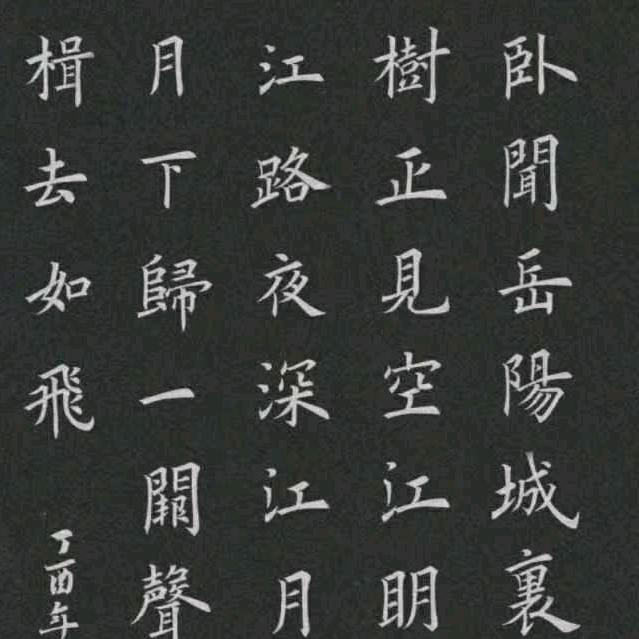 卧聞岳陽城裏
樹正見空江明
江路夜深江月
月下歸一闋聲
楫去如飛
丁酉年